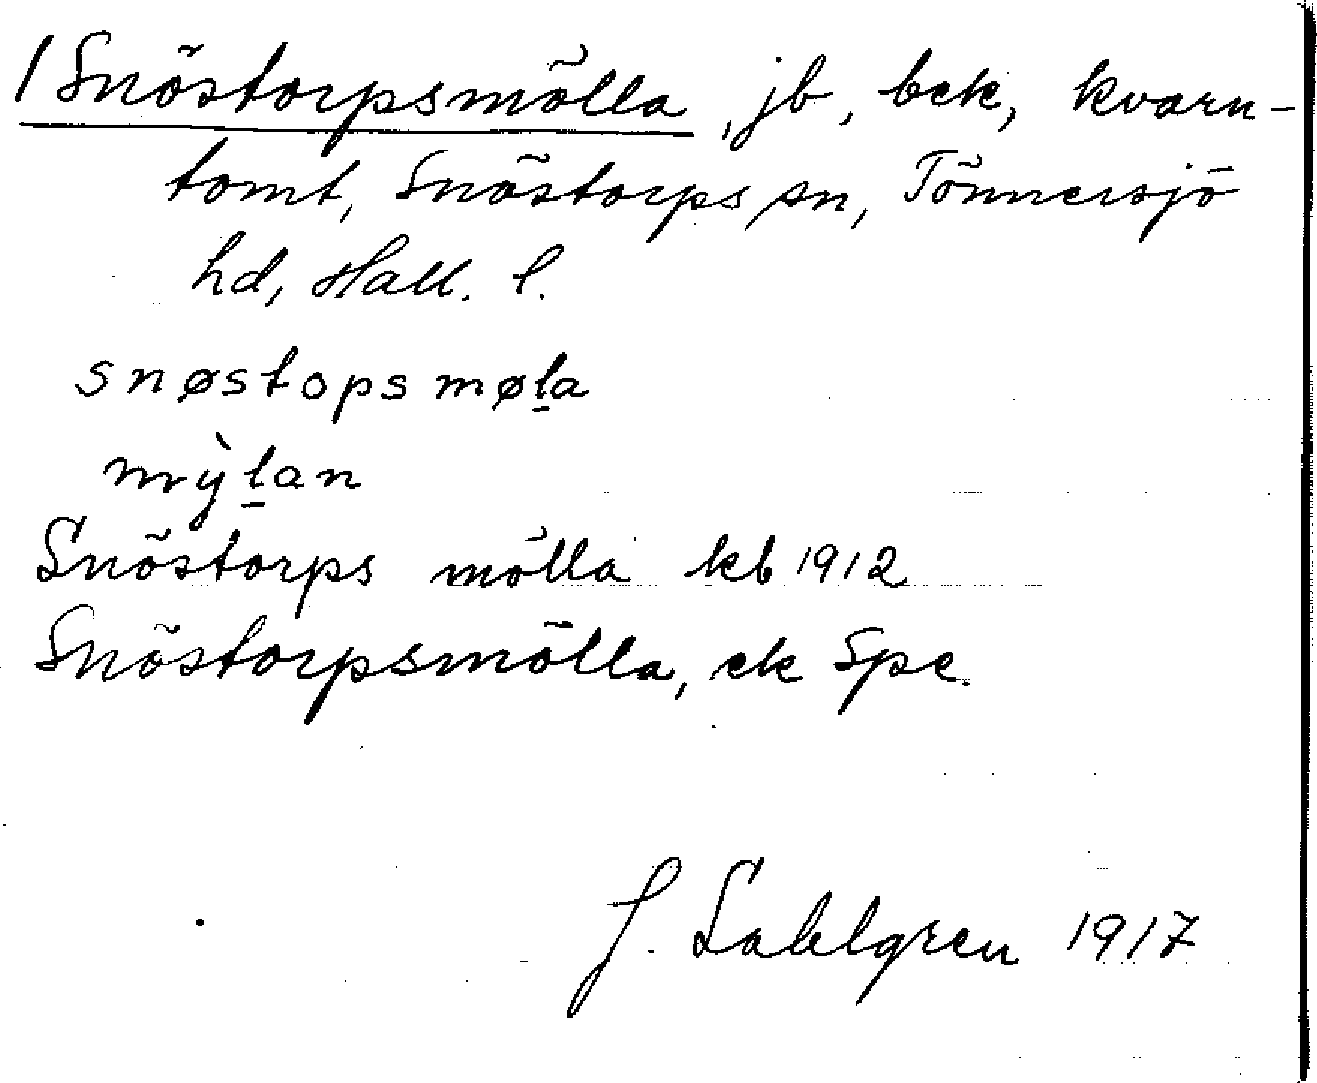 / Snöstorpsmölla, jb, bek, kvarn-
tomt, Snöstorps sn, Tönnersjö
hd, Hall. l.
snøstopsmøl̲a
mỳl̲an
Snöstorps mölla kb 1912
Snöstorpsmölla, ek Spe.
J. Sahlgren 1917